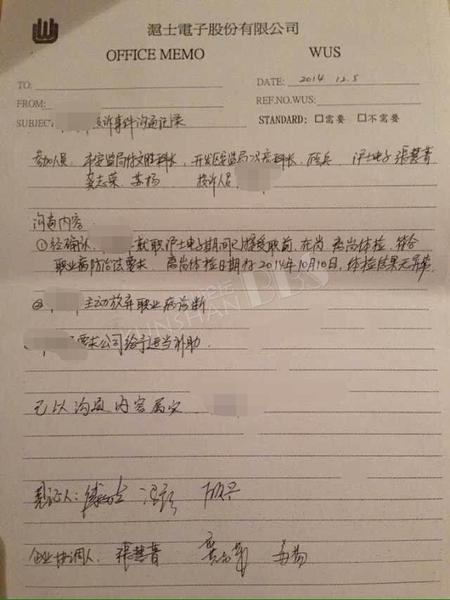 滬士電子股份有限公司
OFFICE MEMO WUS
TO:
DATE: 2014 12.5
FROM:
REF.NO.WUS:
SUBJEC 投诉事件沟通记录
STANDARD: □需要 □不需要
参加人员 科长, 开发区安监局 科长, 沪士电子 張慧菁
龚志荣 苏杨 投诉人员
沟通内容
①经确认, 就职沪士电子期间已接受职前、在岗、离岗体检, 符合
职业病防治法要求, 离岗体检日期为2014年10月10日, 体检结果无异常
② 主动放弃职业病诊断
要求公司给予适当补助
已以沟通内容属实
见证人:
企业协调人: 張慧菁 龚志荣 苏杨
KUNSHAN BBS